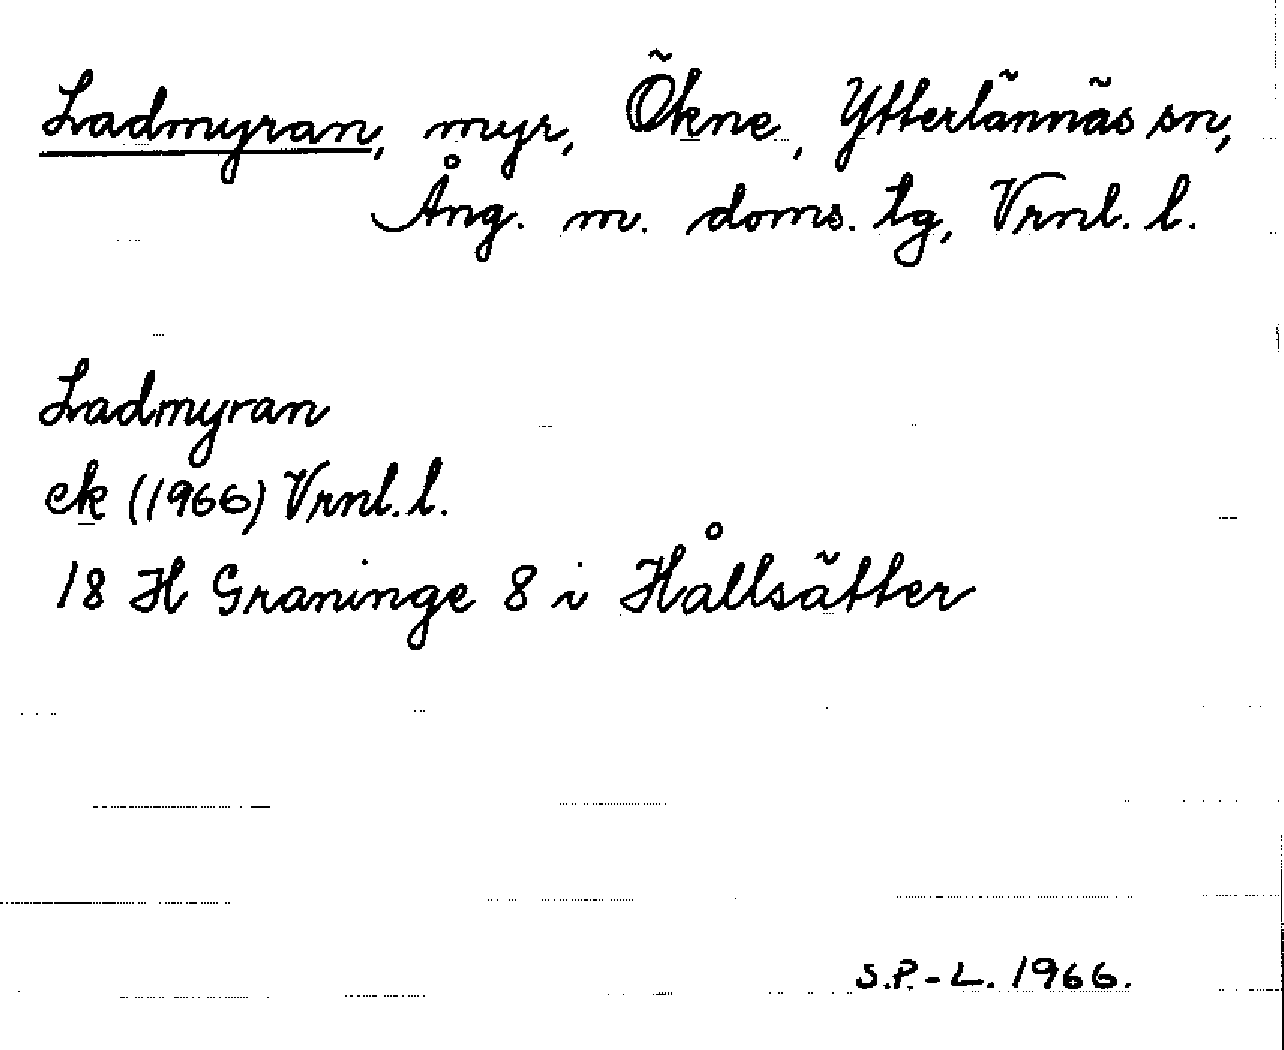 Ladmyran, myr, Ökne, Ytterlännäs sn,
Ång. m. doms. lg, Vrnl. l.
Ladmyran
ek (1966) Vrnl. l.
18 H Graninge 8 i Hållsätter
S.P.-L. 1966.